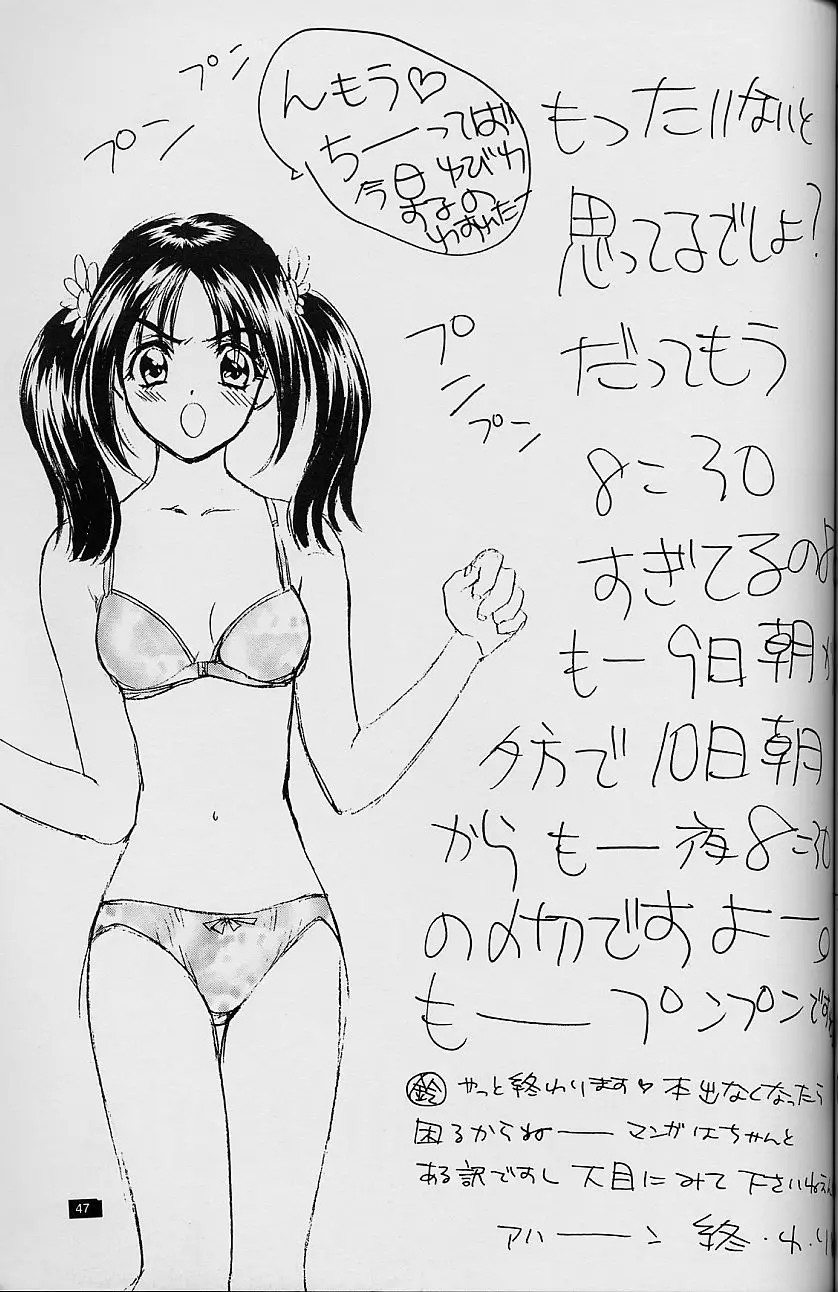 プン
プン
んもう♡
ちーってば
今日ゆびわ
するの
わすれたー
プン
プン
もったいないと
思ってるでしょ?
だってもう
8:30
すぎてるのよ
もー9日朝か
夕方で10日朝
からもー夜8:30
の〆切ですよー。
もープンプンです
鈴 やっと終わります♡本出なくなったら
困るからねーマンガはちゃんと
ある訳ですし大目にみて下さいねえ
アハーン 終・わ・り
47